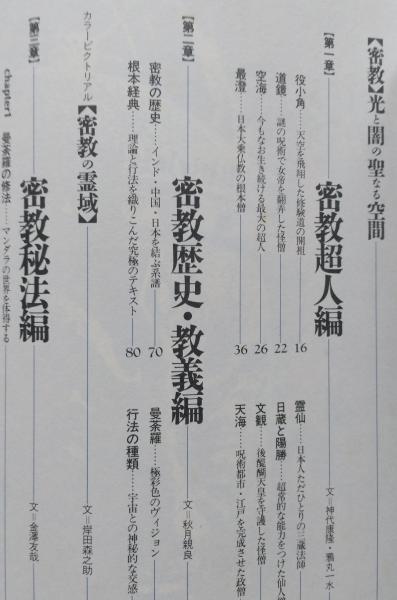 【密教】光と闇の聖なる空間
【第一章】
密教超人編
文=神代康隆・鴨丸一水
役小角……天空を飛翔した修験道の開祖
16
道鏡……謎の呪術で女帝を翻弄した怪僧
22
空海……今もなお生き続ける最大の超人
26
最澄……日本大乗仏教の根本僧
36
霊仙……日本人ただひとりの三蔵法師
日蔵と陽勝……超常的な能力をつけた仙人
文観……後醍醐天皇を守護した怪僧
天海……呪術都市・江戸を完成させた政僧
【第二章】
密教歴史・教義編
文=秋月親良
密教の歴史……インド・中国・日本を結ぶ系譜
70
根本経典……理論と行法を織りこんだ究極のテキスト
80
曼荼羅……極彩色のヴィジョン
行法の種類……宇宙との神秘的な交感
カラーピクトリアル【密教の霊域】
文=岸田森之助
【第三章】
密教秘法編
文=金澤友哉
chapter1 曼荼羅の修法……マンダラの世界を体得する